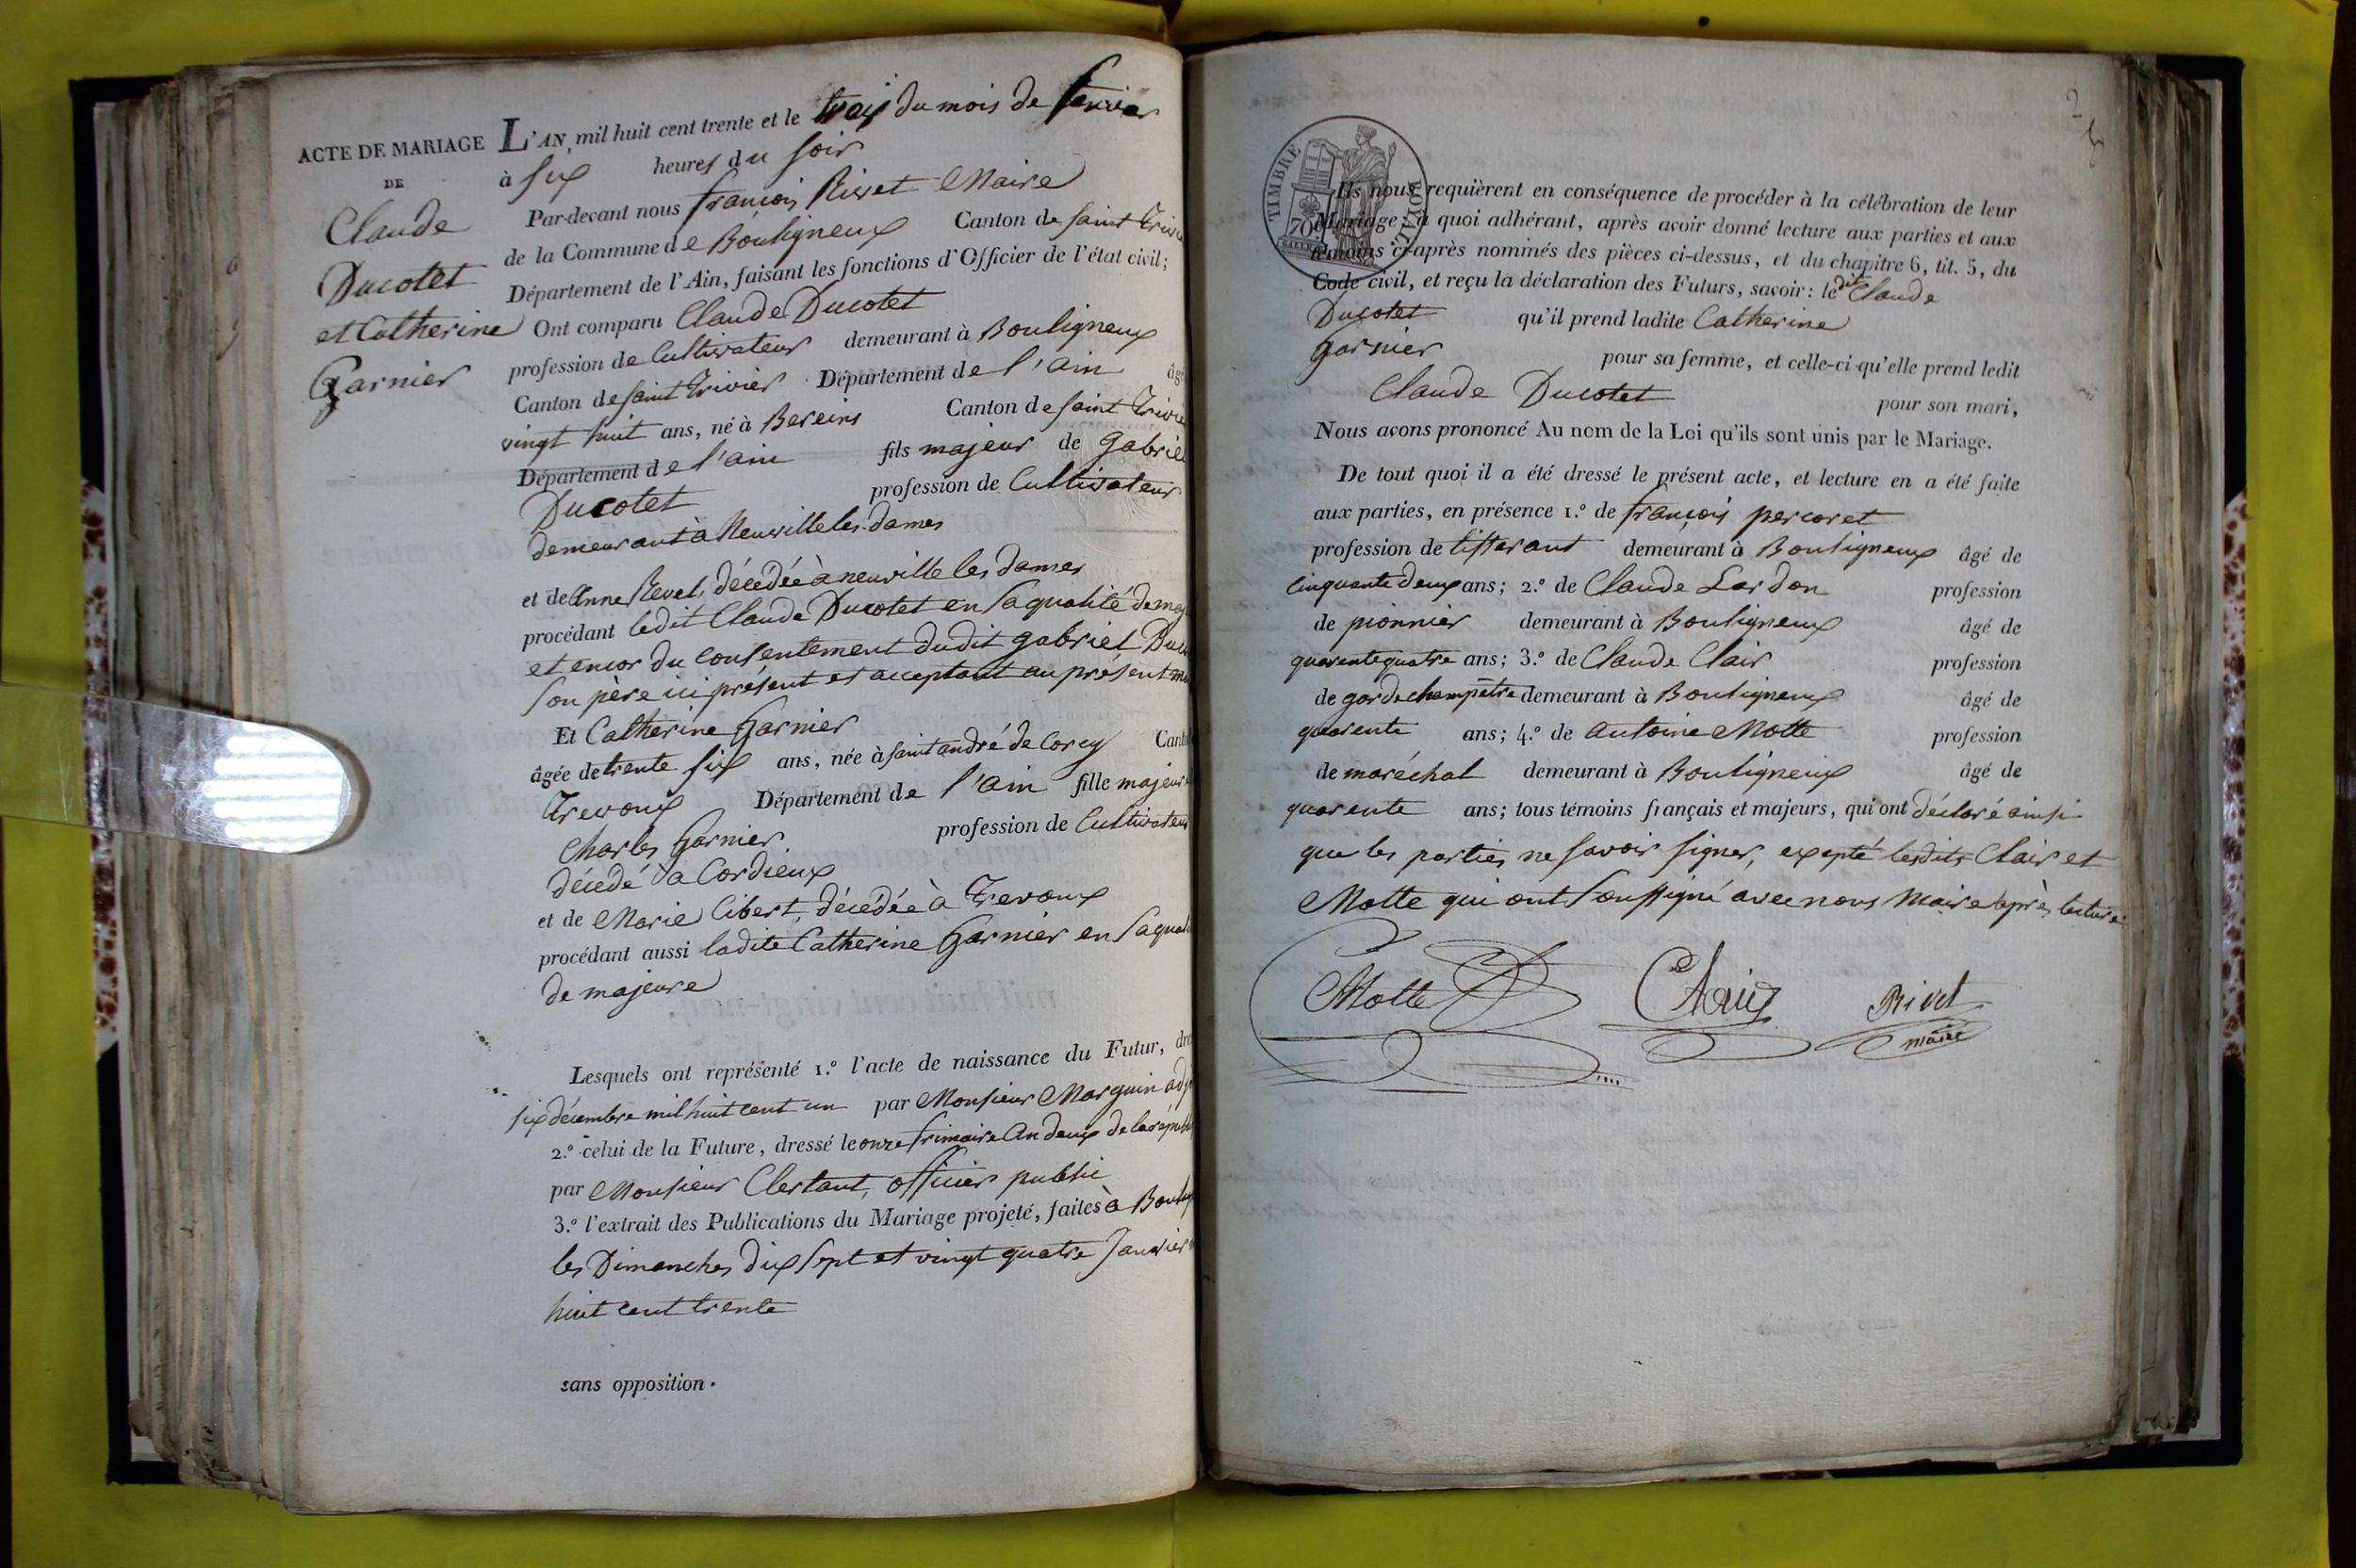 ACTE DE MARIAGE
DE
Claude
Ducotet
et Catherine
Garnier
L'AN mil huit cent trente et le trois du mois de fevrier
à six heures du soir
Par-devant nous françois Rivet Maire
de la Commune de Bouligneux Canton de saint Trivier
Département de l'Ain, faisant les fonctions d'Officier de l'état civil;
Ont comparu Claude Ducotet
profession de Cultivateur demeurant à Bouligneux
Canton de saint Trivier Département de l'ain âgé
vingt huit ans, né à Bereins Canton de saint Trivier
Département de l'ain fils majeur de gabriel
Ducotet profession de Cultivateur
demeurant à Neuville les dames
et de Anne Revel, décedée à neuville les dames
procédant ledit Claude Ducotet en sa qualité de maj
et encor du consentement dudit gabriel Duco
son père ici présent et acceptant au présent ma
Et Catherine Garnier
âgée de trente six ans, née à saint andré de Corcy Cant
Trevoux Département de l'ain fille majeure
Charles Garnier profession de Cultivateur
décedé à Cordieux
et de Marie Cibert, décedée à Trevoux
procédant aussi ladite Catherine Garnier en sa qualit
de majeure
Lesquels ont représenté 1.° l'acte de naissance du Futur, dre
six décembre mil huit cent un par Monsieur Marguin adj
2.° celui de la Future, dressé le onze frimaire An deux de la répub
par Monsieur Clertant, officier public
3.° l'extrait des Publications du Mariage projeté, faites à Boulig
les Dimanches dix sept et vingt quatre Janvier
huit cent trente
sans opposition.
25
TIMBRE ROYAL
70
Ils nous requièrent en conséquence de procéder à la célébration de leur
Mariage; à quoi adhérant, après avoir donné lecture aux parties et aux
témoins ci-après nominés des pièces ci-dessus, et du chapitre 6, tit. 5, du
Code civil, et reçu la déclaration des Futurs, savoir: le dit Claude
Ducotet qu'il prend ladite Catherine
Garnier pour sa femme, et celle-ci qu'elle prend ledit
Claude Ducotet pour son mari,
Nous avons prononcé Au nom de la Loi qu'ils sont unis par le Mariage.
De tout quoi il a été dressé le présent acte, et lecture en a été faite
aux parties, en présence 1.° de françois percoret
profession de tisserant demeurant à Bouligneux âgé de
cinquante deux ans; 2.° de Claude Lardon profession
de pionnier demeurant à Bouligneux âgé de
quarente quatre ans; 3.° de Claude Clair profession
de garde champêtre demeurant à Bouligneux âgé de
quarente ans; 4.° de Antoine Motte profession
de maréchal demeurant à Bouligneux âgé de
quarente ans; tous témoins français et majeurs, qui ont déclaré ainsi
que les parties ne savoir signer, expté lesdits Clair et
Motte qui ont soussigné avec nous Maire après lecture.
Motte Clair Rivet
maire